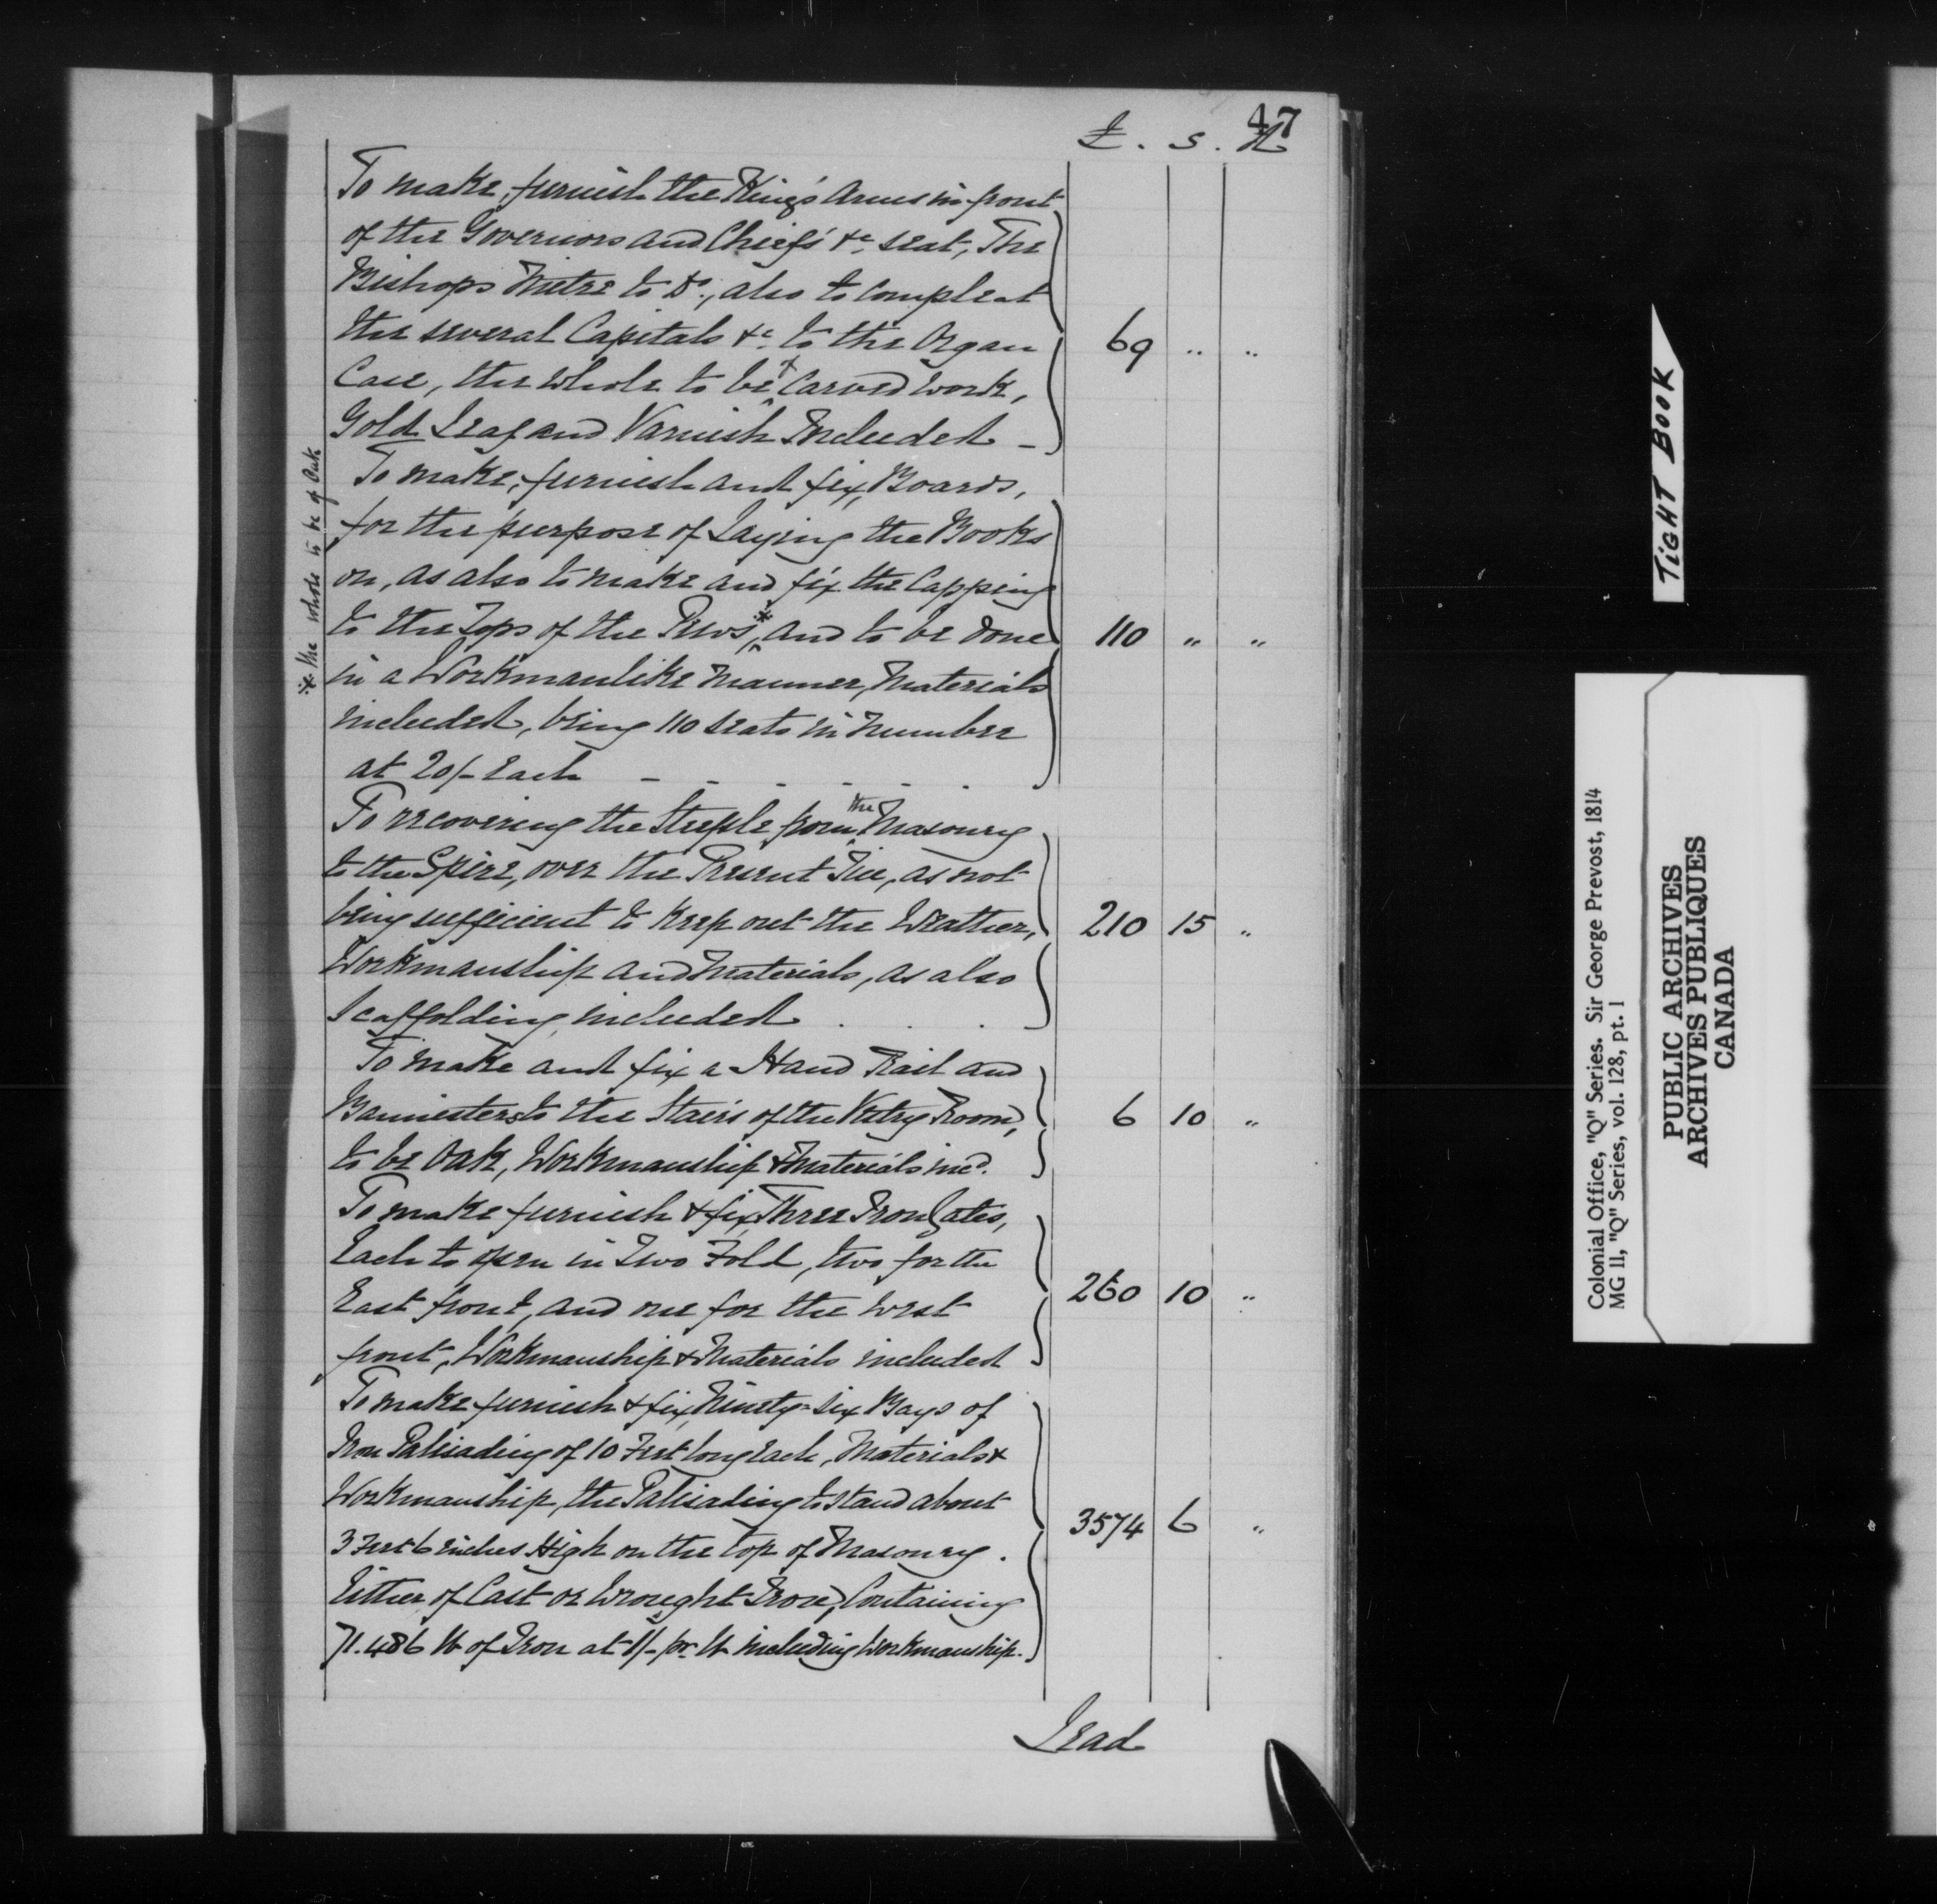 47
£. s. d
To make, furnish the King's Arms in front
of the Governors and Chiefs &c. seat, The
Bishops Mitre to Do., also to compleat
the several Capitals &c. to the Organ
Case, the whole to be of Carved work,
Gold Leaf and Varnish Included -
69 " "
To make, furnish and fix, Boards,
for the purpose of Laying the Books
on, as also to make and fix the Capping
to the Tops of the Pews,* and to be done
in a Workmanlike Manner, Materials
included, being 110 seats in Number
at 20/- Each - - - - - -
110 " "
* the whole to be of Oak
To recovering the Steeple, from the Masonry
to the Spire, over the Present Tin, as not
being sufficient to keep out the Weather,
Workmanship and Materials, as also
Scaffolding included . . .
210 15 "
To make and fix a Hand Rail and
Bannisters to the Stairs of the Vestry Room,
to be Oak, Workmanship & Materials incd.
6 10 "
To make furnish & fix, Three Iron Gates,
Each to open in Two Fold, two for the
East front, and one for the West
front, Workmanship & Materials included
260 10 "
To make furnish & fix, Ninety-six Bays of
Iron Palisading of 10 Feet long Each, Materials &
Workmanship, the Palisading to stand about
3 Feet 6 inches High on the top of Masonry.
Either of Cast or Wrought Iron, Containing
71.486 lb of Iron at 1/- pr. lb including Workmanship.
3574 6 "
Lead
TIGHT BOOK
Colonial Office, "Q" Series. Sir George Prevost, 1814
MG 11, "Q" Series, vol. 128, pt. 1
PUBLIC ARCHIVES
ARCHIVES PUBLIQUES
CANADA